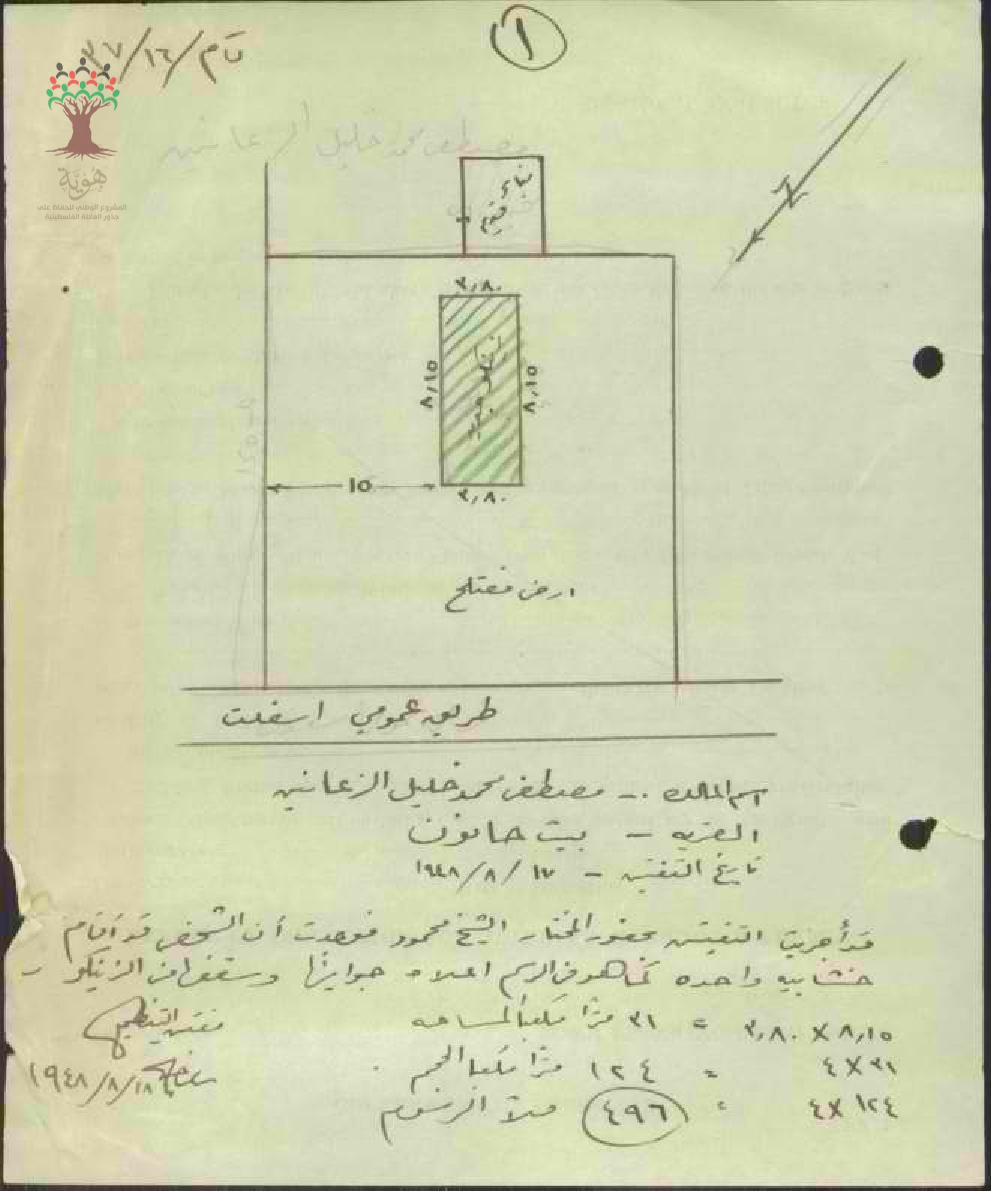 ١
تام/١٦/٣٧
هوية
المشروع الوطني للحفاظ على
جذور العائلة الفلسطينية
مصطفى محمد خليل الزعانين
بناء
قديم
٣,٨٠
٨,١٥
زنكو جديد
٨,١٥
١٥
٣,٨٠
ارض مصلح
طريق عمومي اسفلت
اسم المالك :- مصطفى محمد خليل الزعانين
القريه - بيت حانون
تاريخ التفتيش - ١٧/٨/١٩٤٨
قد أجريت التفتيش بحضور المختار الشيخ محمود فوجدت أن الشخص قد أقام
خشابيه واحده كما هو في الرسم اعلاه جوانبها وسقفها من الزينكو -
٨,١٥ X ٣,٨٠ = ٣١ مترًا مكعبا المساحه
مفتش التنظيم
٣١ X ٤ = ١٢٤ مترًا مكعبا الحجم
١٨/٨/١٩٤٨
١٢٤ X ٤ = ٤٩٦ ملاً الرسوم